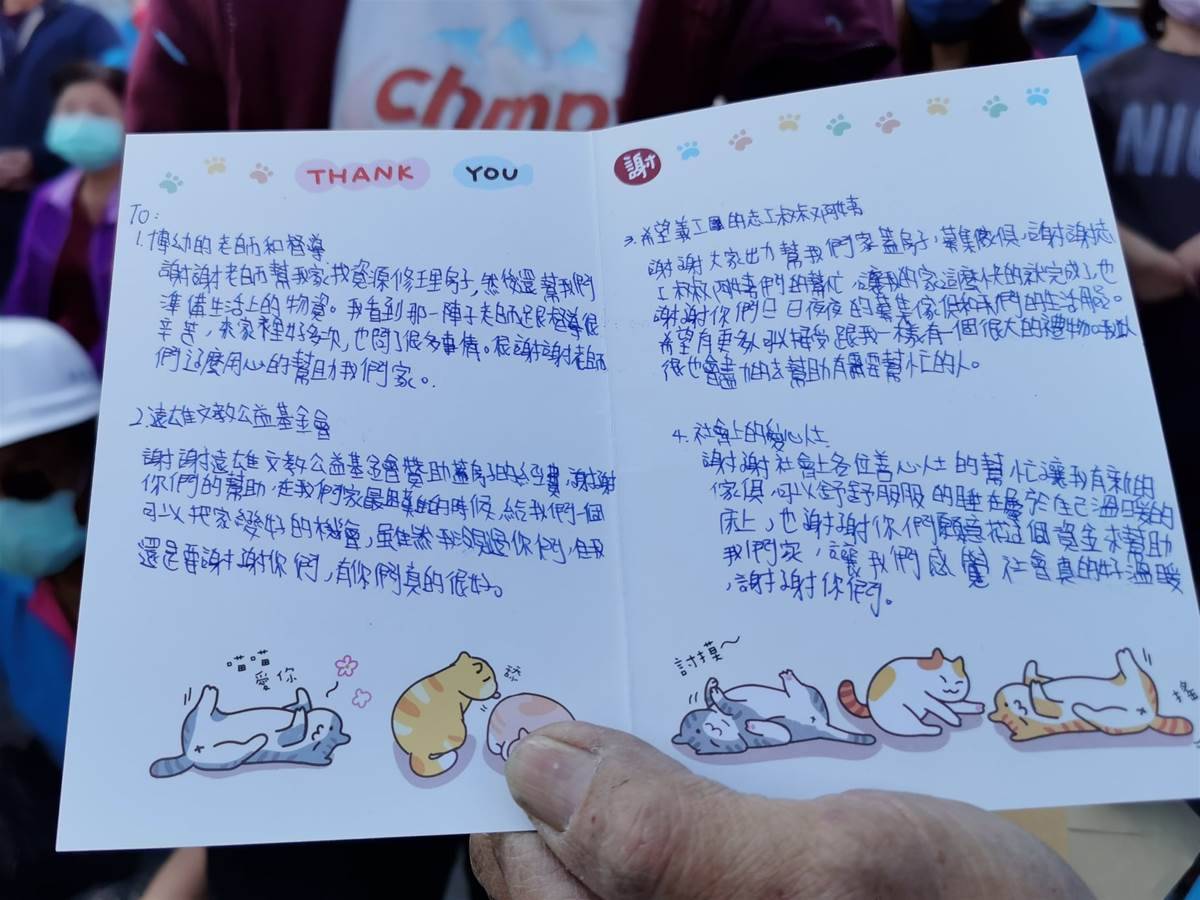 chmp
NIC
THANK YOU
謝
TO:
1. 博幼的老師和督導
謝謝老師幫我家找資源修理房子,然後還幫我們
準備生活上的物資。我看到那一陣子老師跟督導很
辛苦,來家裡好多次,也問了很多事情。很謝謝老師
們這麼用心的幫助我們家。
2. 遠雄文教公益基金會
謝謝遠雄文教公益基金會贊助蓋房子的經費,謝謝
你們的幫助,在我們家最困難的時候,給我們一個
可以把家變好的機會,雖然我沒見過你們,但我
還是要謝謝你們,有你們真的很好。
3. 希望義工團的志工叔叔阿姨
謝謝大家出力幫我們家蓋房子,募集傢俱,謝謝志
工叔叔阿姨們的幫忙,讓我的家這麼快的就完成了,也
謝謝你們日日夜夜的募集傢俱和我們的生活用品。
希望有更多 跟我一樣有一個很大的禮物。我以
後也會盡力的去幫助有需要幫忙的人。
4. 社會上的愛心人士
謝謝社會上各位善心人士的幫忙讓我有新的
傢俱,可以舒舒服服的睡在屬於自己溫暖的
床上,也謝謝你們願意花這個資金來幫助
我們家,讓我們感覺社會真的好溫暖
,謝謝你們。
喵喵
愛你
討摸~